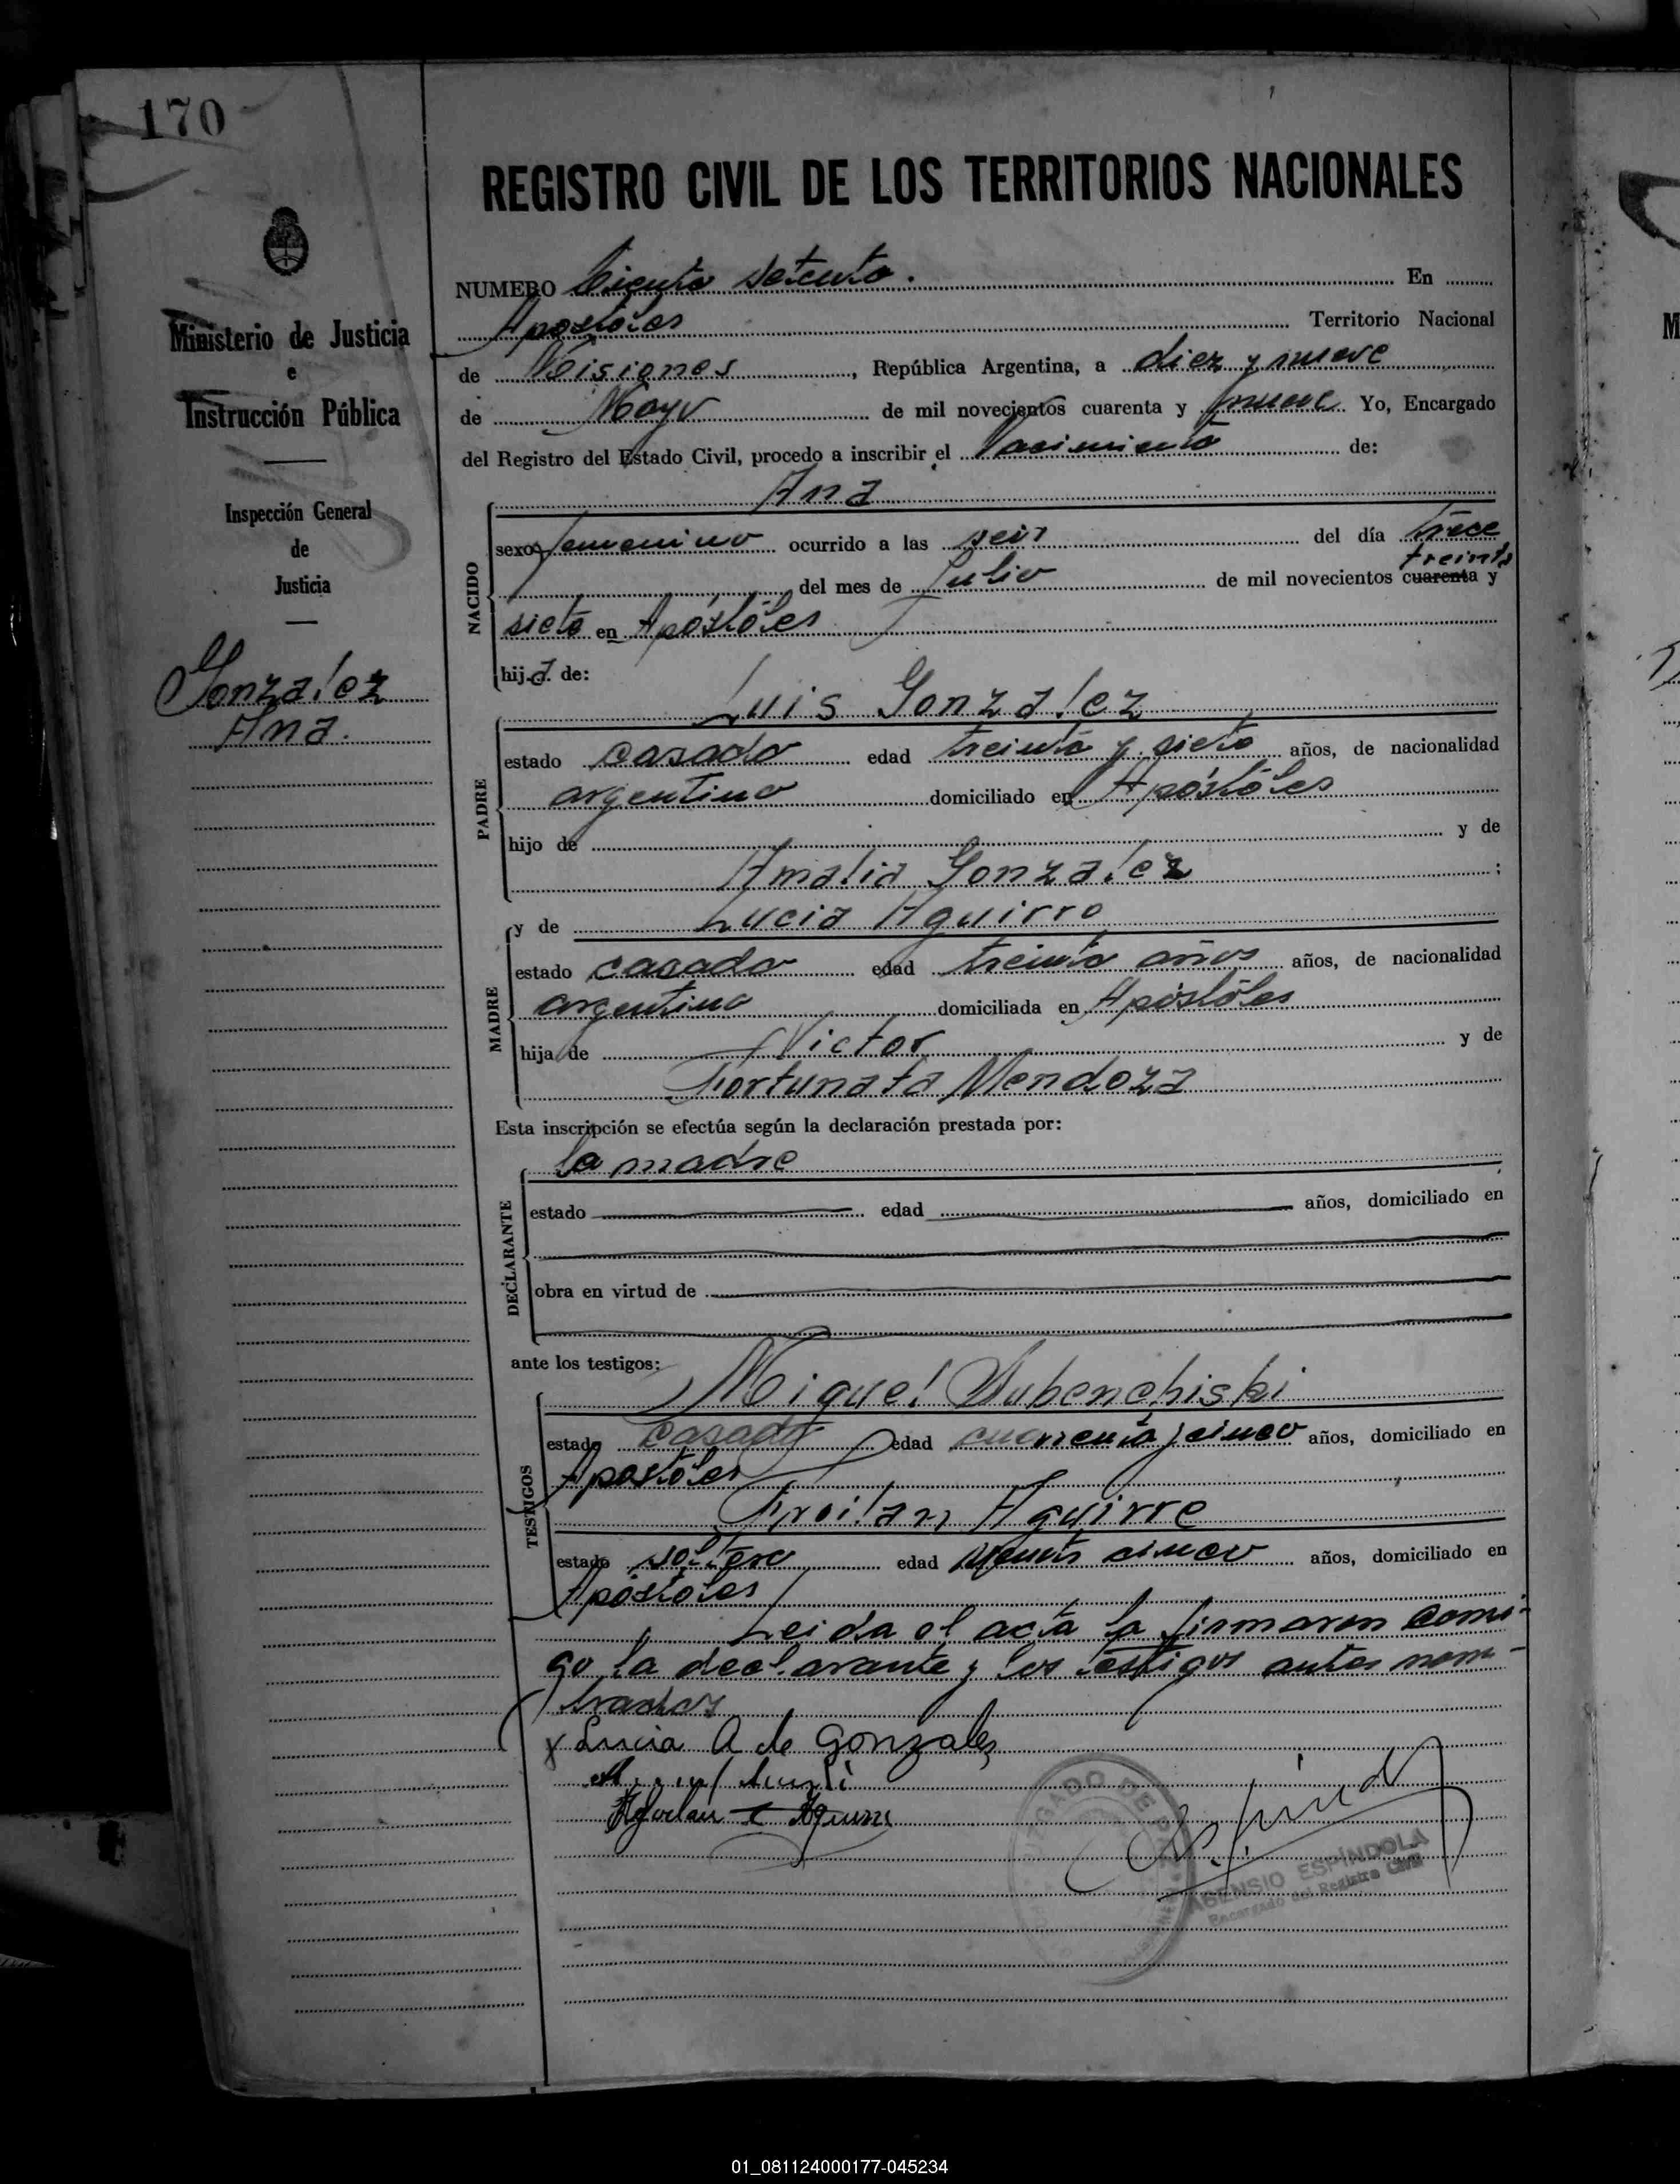 170
REGISTRO CIVIL DE LOS TERRITORIOS NACIONALES
Ministerio de Justicia
e
Instrucción Pública
Inspección General
de
Justicia
Gonzalez
Ana.
NUMERO Ciento setenta. En
Apostoles Territorio Nacional
de Misiones, República Argentina, a diez y nueve
de Mayo de mil novecientos cuarenta y nueve Yo, Encargado
del Registro del Estado Civil, procedo a inscribir el Nacimiento de:
Ana
NACIDO
sexo femenino ocurrido a las seis del día trece
treinta
del mes de Julio de mil novecientos cuarenta y
siete en Apóstoles
hija de:
Luis Gonzalez
PADRE
estado casado edad treinta y siete años, de nacionalidad
argentino domiciliado en Apóstoles
hijo de y de
Amalia Gonzalez ;
y de Lucia Aguirre
MADRE
estado casada edad treinta años años, de nacionalidad
argentina domiciliada en Apóstoles
hija de Victor y de
Fortunata Mendoza
Esta inscripción se efectúa según la declaración prestada por:
la madre
DECLARANTE
estado edad años, domiciliado en
obra en virtud de
ante los testigos:
Miguel Dubenchiski
TESTIGOS
estado casado edad cuarenta y cinco años, domiciliado en
Apostoles
Froilan Aguirre
estado soltero edad veinte cinco años, domiciliado en
Apóstoles
Leida el acta la firmaron conmi-
go la declarante y los testigos antes nom-
brados
x Lucia A de Gonzales
ASENSIO ESPÍNDOLA
Encargado del Registro Civil
01_081124000177-045234